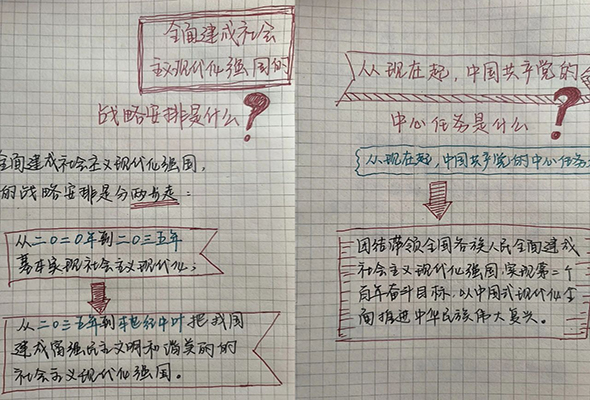 全面建成社会
主义现代化强国的
战略安排是什么?
全面建成社会主义现代化强国,
的战略安排是分两步走:
从二〇二〇年到二〇三五年
基本实现社会主义现代化;
从二〇三五年到本世纪中叶把我国
建成富强民主文明和谐美丽的
社会主义现代化强国。
从现在起,中国共产党的
中心任务是什么?
从现在起,中国共产党的中心任务
团结带领全国各族人民全面建成
社会主义现代化强国,实现第二个
百年奋斗目标,以中国式现代化全
面推进中华民族伟大复兴。